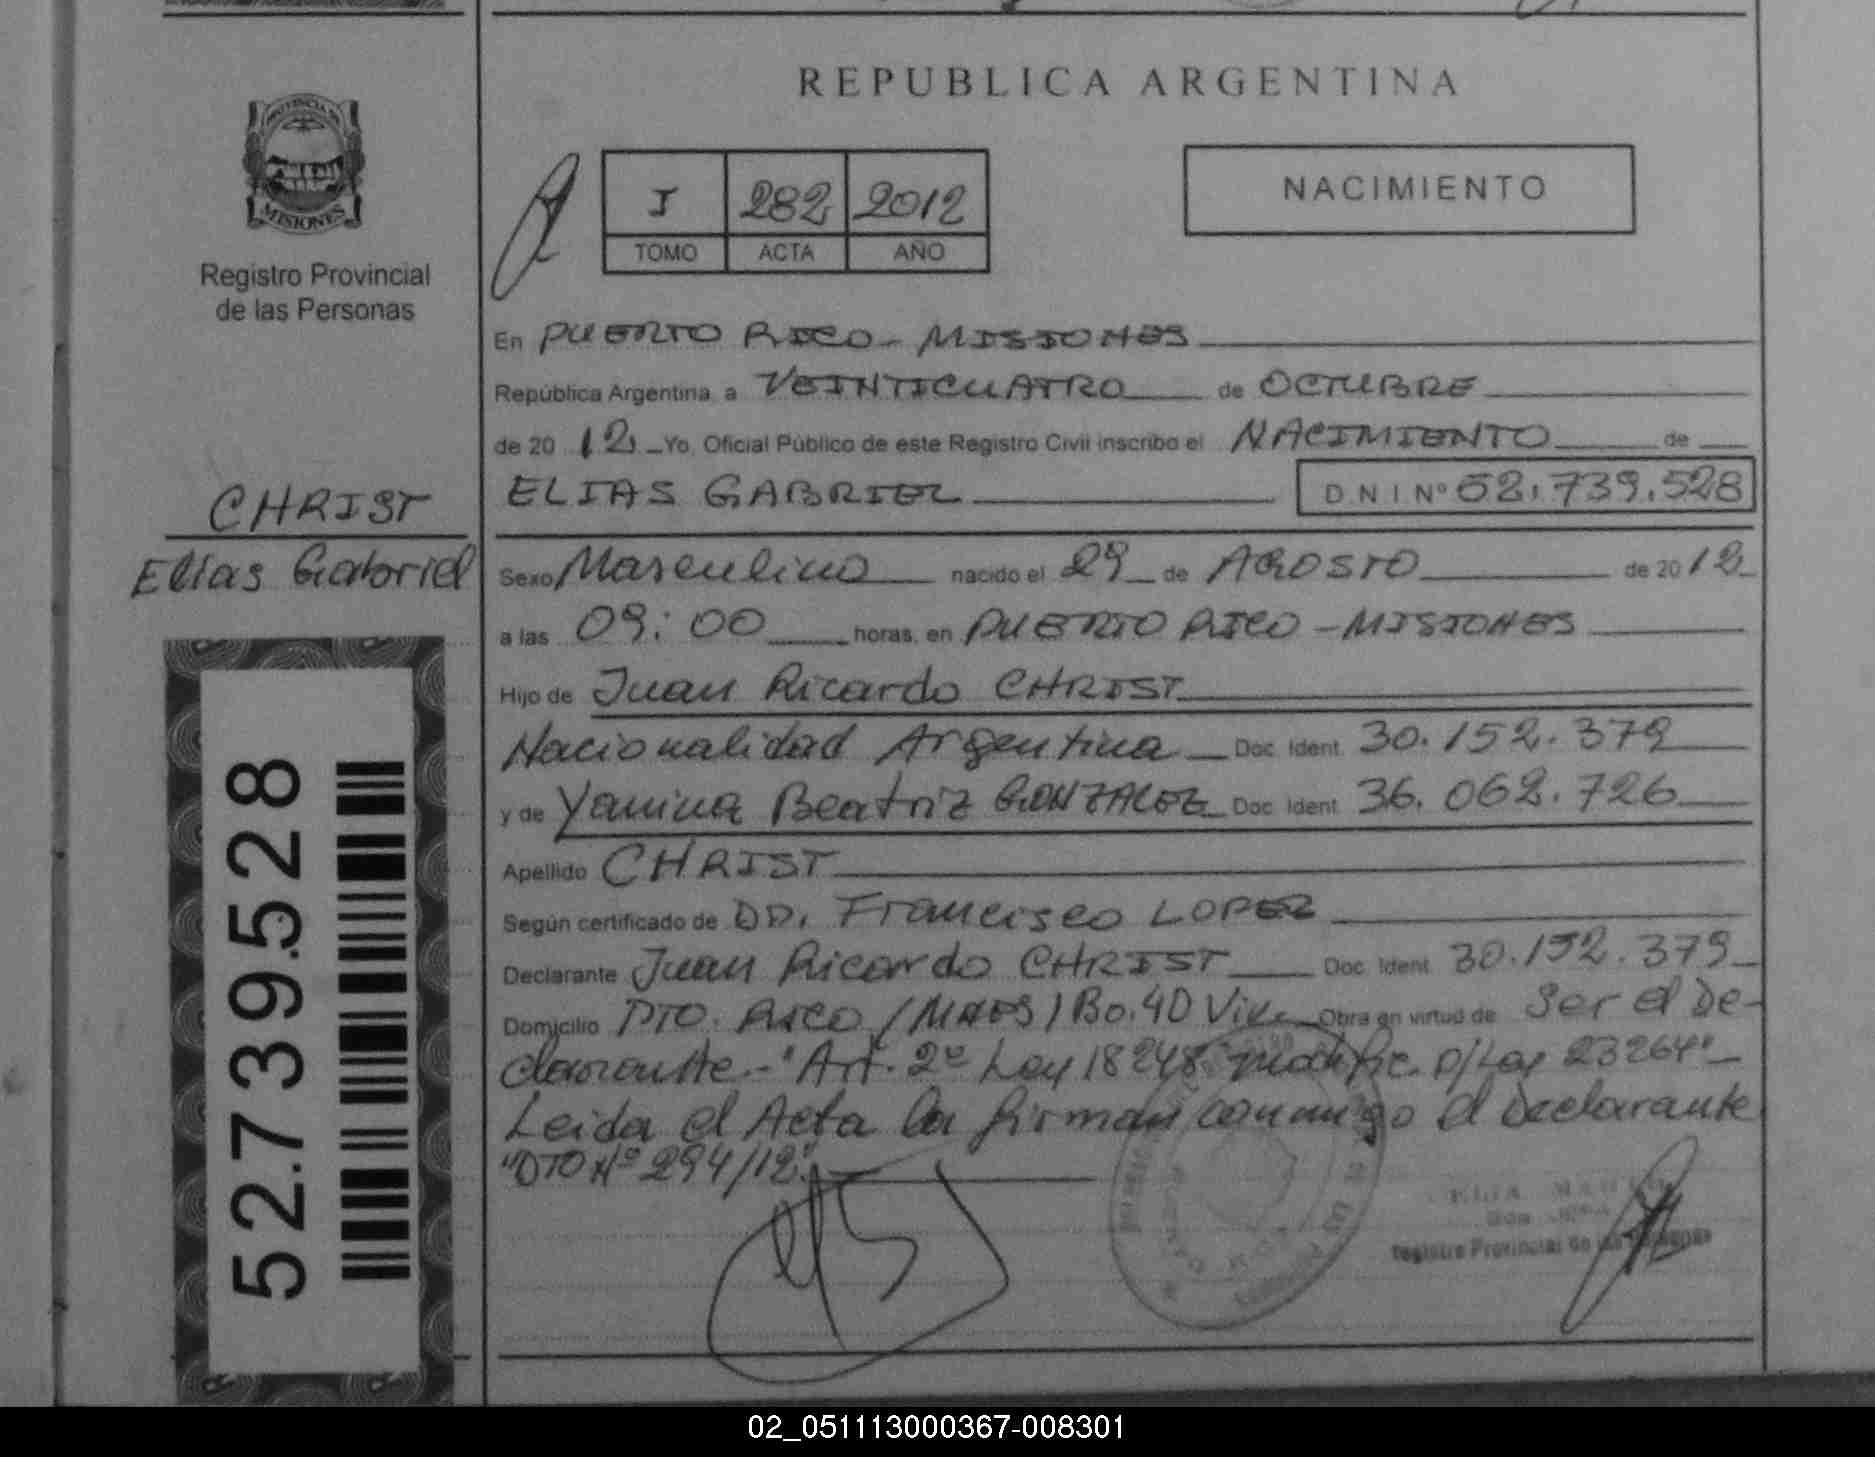 REPUBLICA ARGENTINA
PROVINCIA DE
MISIONES
Registro Provincial
de las Personas
I 282 2012
TOMO ACTA AÑO
NACIMIENTO
En PUERTO RICO - MISIONES
República Argentina, a VEINTICUATRO de OCTUBRE
de 20 12 Yo, Oficial Público de este Registro Civil inscribo el NACIMIENTO de
ELIAS GABRIEL D N I Nº 52.739.528
CHRIST
Elías Gabriel
Sexo Masculino nacido el 29 de AGOSTO de 20 12
a las 09:00 horas, en PUERTO RICO - MISIONES
Hijo de Juan Ricardo CHRIST
Nacionalidad Argentina Doc. Ident. 30.152.379
y de Yanina Beatriz GONZALEZ Doc. Ident. 36.062.726
Apellido CHRIST
Según certificado de DD. Francisco LOPEZ
Declarante Juan Ricardo CHRIST Doc. Ident. 30.152.379
Domicilio PTO. RICO / (MNES) Bo. 40 Viv. Obra en virtud de Ser el De-
clarante.- "Art. 2º Ley 18248 modific. p/Ley 23264"
Leida el Acta la firman conmigo el Declarante
"DTO Nº 294/12"
Registro Provincial de las Personas
52.739.528
02_051113000367-008301